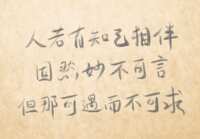 人若有知己相伴
固然妙不可言
但那可遇而不可求